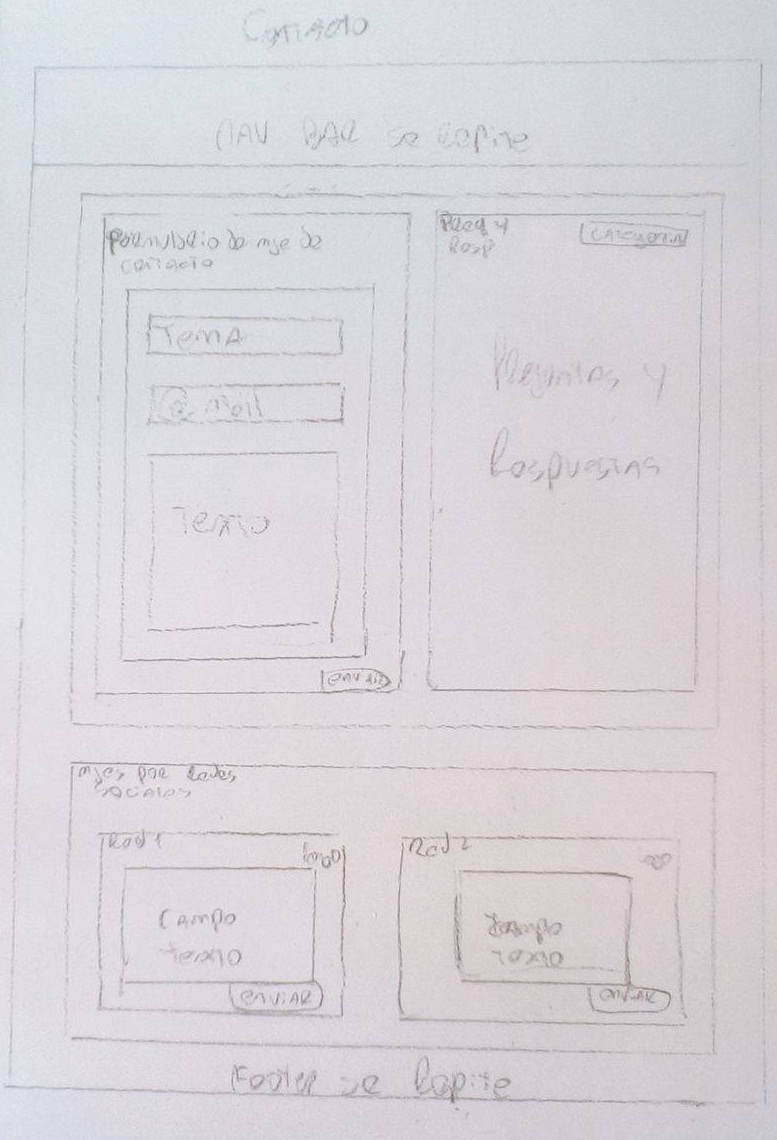 Contacto
NAV BAR se Repite
Formulario de mje de
contacto
Tema
@ mail
Texto
enviar
Preg y
Resp
CATegoria
Preguntas y
Respuestas
mjes por Redes
sociales
Red 1
logo
CAmpo
Texto
enviAR
Red 2
CAmpo
Texto
enviAR
Footer se Repite